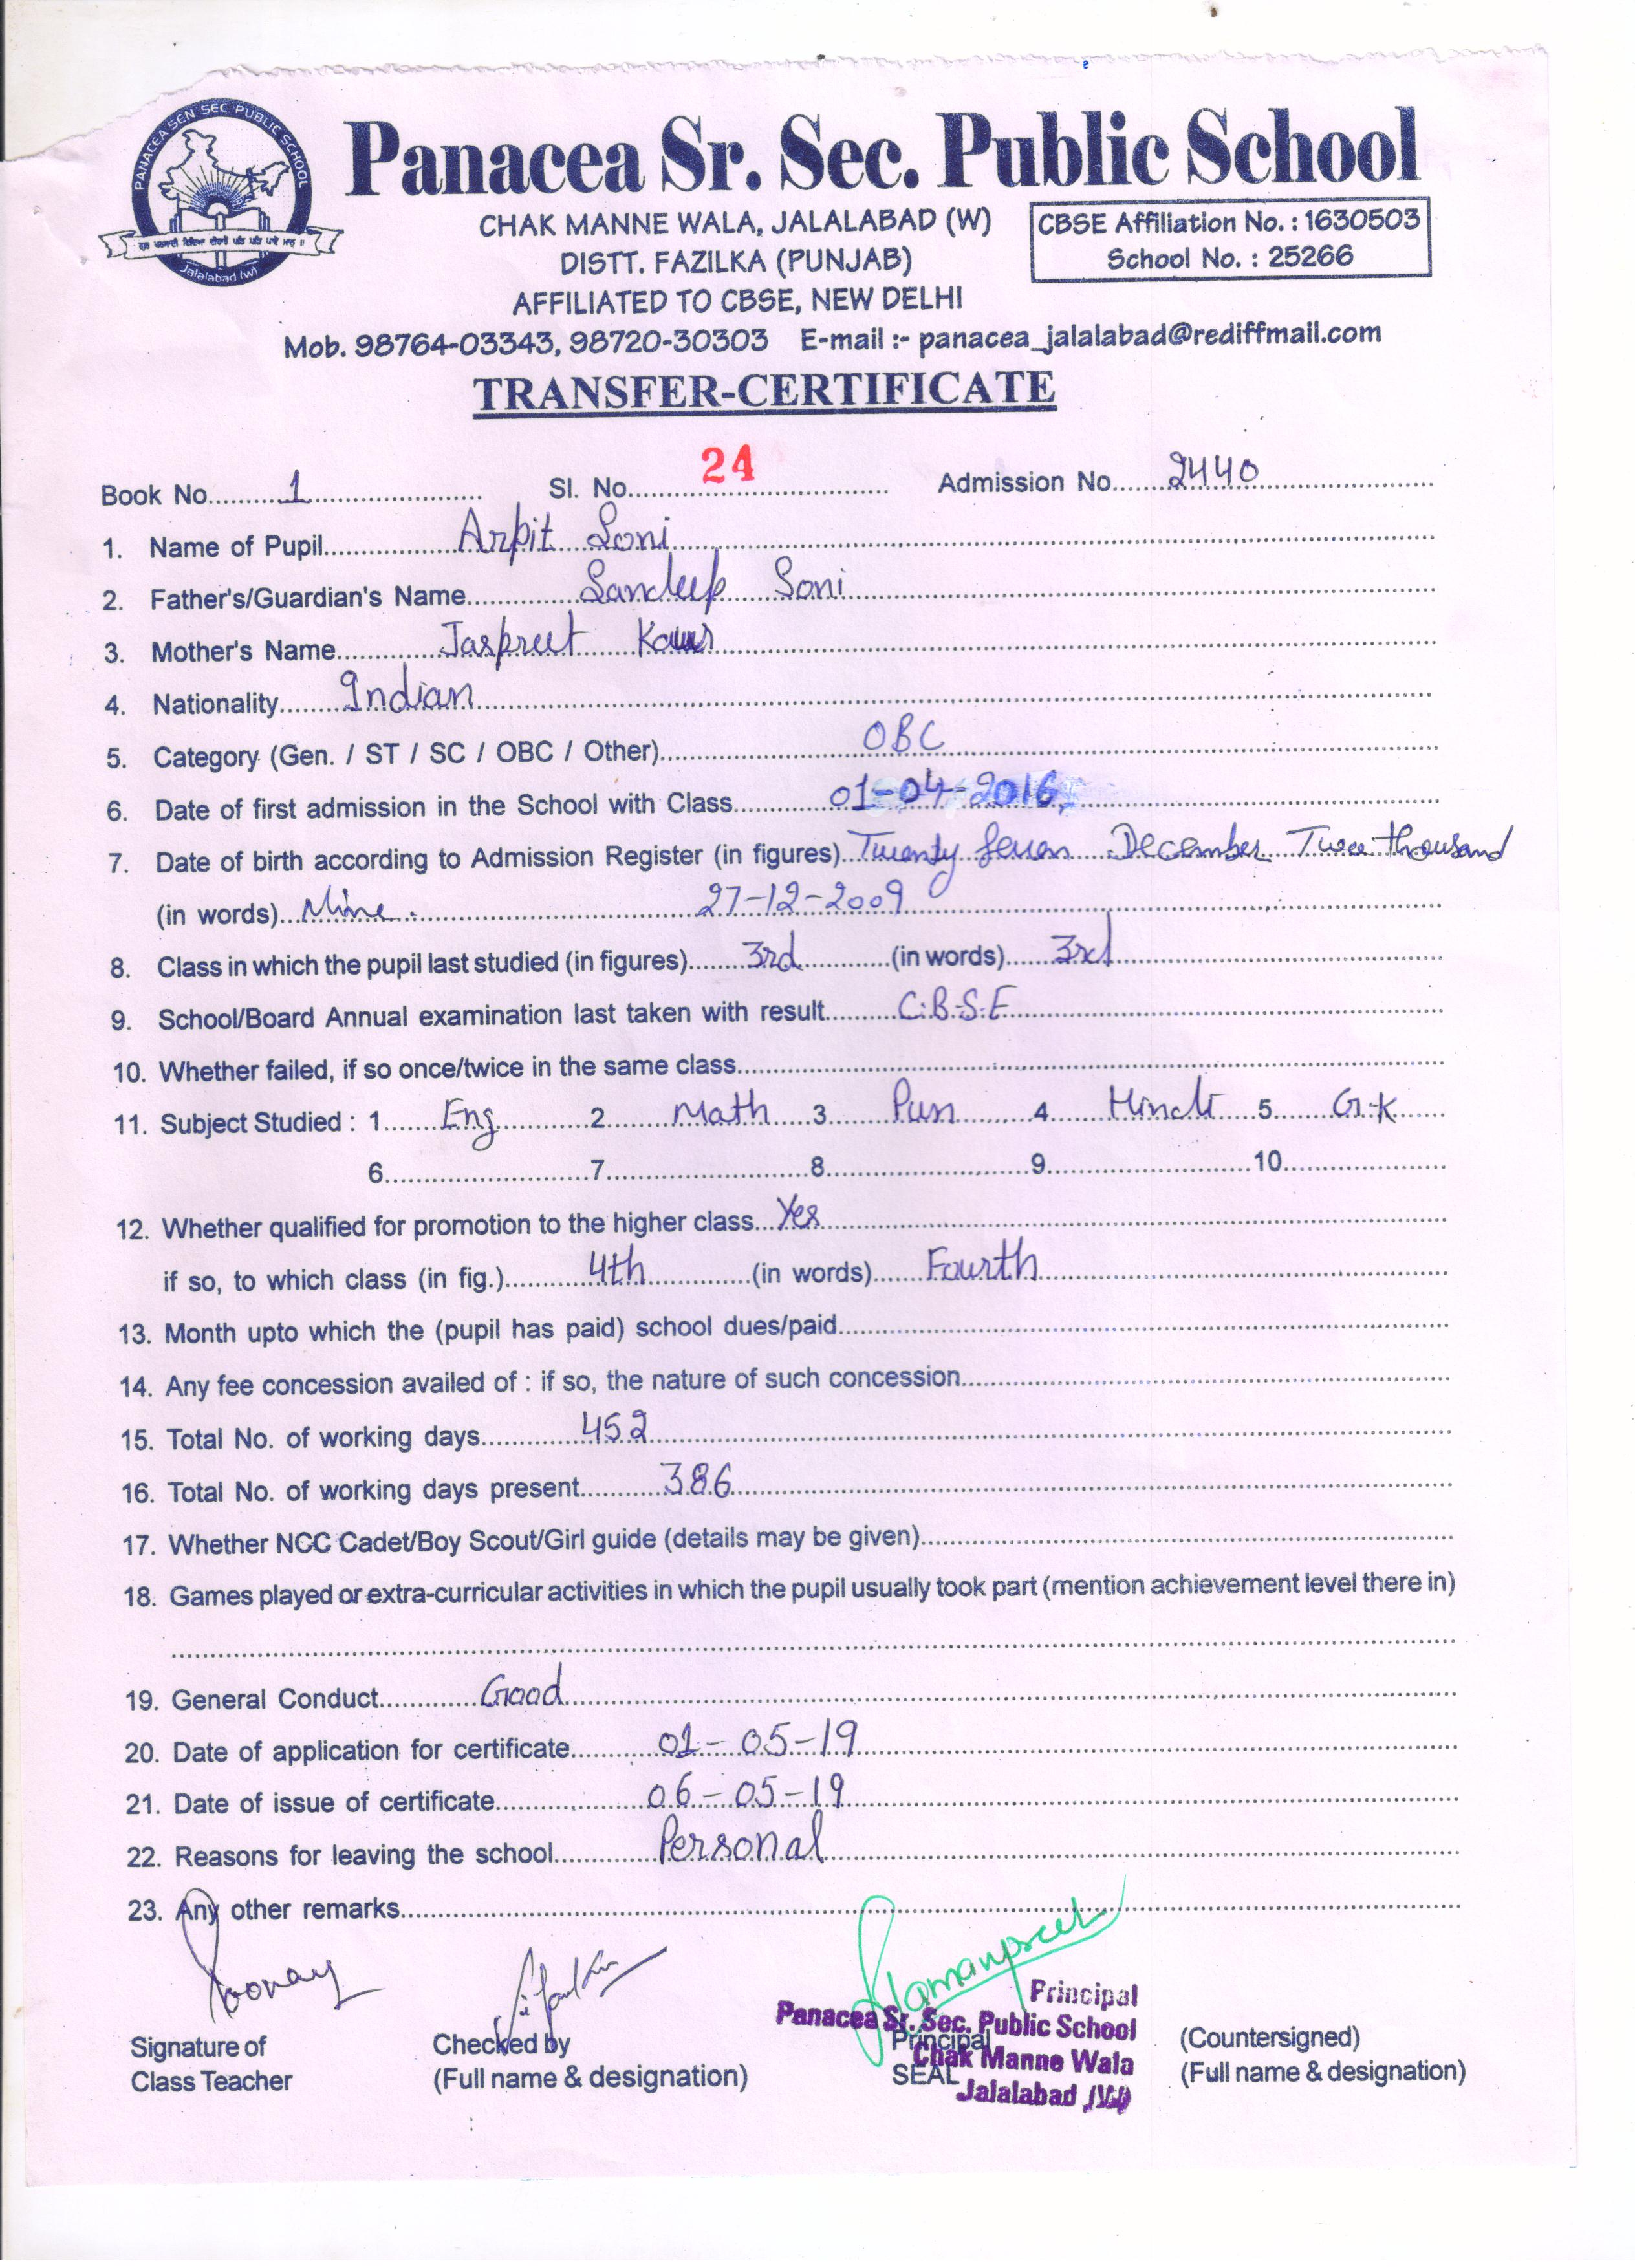 PANACEA SEN SEC PUBLIC SCHOOL
Jalalabad (W)
Panacea Sr. Sec. Public School
CHAK MANNE WALA, JALALABAD (W)
DISTT. FAZILKA (PUNJAB)
AFFILIATED TO CBSE, NEW DELHI
CBSE Affiliation No. : 1630503
School No. : 25266
Mob. 98764-03343, 98720-30303 E-mail :- panacea_jalalabad@rediffmail.com
TRANSFER-CERTIFICATE
Book No. 1 Sl. No. 24 Admission No. 2440
1. Name of Pupil Arpit Soni
2. Father's/Guardian's Name Sandeep Soni
3. Mother's Name Jaspreet Kaur
4. Nationality Indian
5. Category (Gen. / ST / SC / OBC / Other) OBC
6. Date of first admission in the School with Class 01-04-2016
7. Date of birth according to Admission Register (in figures) Twenty Seven December Two thousand
(in words) Nine. 27-12-2009
8. Class in which the pupil last studied (in figures) 3rd (in words) 3rd
9. School/Board Annual examination last taken with result C.B.S.E
10. Whether failed, if so once/twice in the same class
11. Subject Studied : 1 Eng 2 Math 3 Pun 4 Hindi 5 G.K
6 7 8 9 10
12. Whether qualified for promotion to the higher class Yes
if so, to which class (in fig.) 4th (in words) Fourth
13. Month upto which the (pupil has paid) school dues/paid
14. Any fee concession availed of : if so, the nature of such concession
15. Total No. of working days 452
16. Total No. of working days present 386
17. Whether NCC Cadet/Boy Scout/Girl guide (details may be given)
18. Games played or extra-curricular activities in which the pupil usually took part (mention achievement level there in)
19. General Conduct Good
20. Date of application for certificate 01-05-19
21. Date of issue of certificate 06-05-19
22. Reasons for leaving the school Personal
23. Any other remarks
Principal
Panacea Sr. Sec. Public School
Chak Manne Wala
Jalalabad (W)
Signature of
Class Teacher
Checked by
(Full name & designation)
Principal
SEAL
(Countersigned)
(Full name & designation)